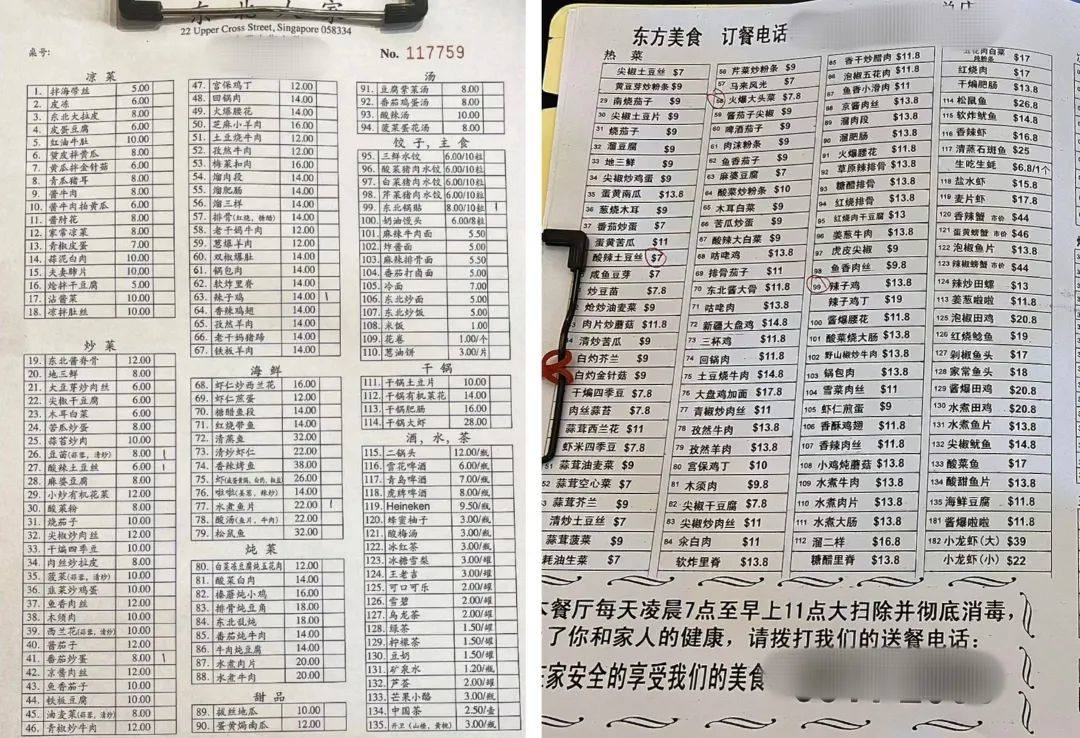 东北人家
22 Upper Cross Street, Singapore 058334
桌号:
No. 117759
凉菜
1. 拌海带丝 5.00
2. 皮冻 6.00
3. 东北大拉皮 8.00
4. 皮蛋豆腐 6.00
5. 红油牛肚 10.00
6. 蒉皮拌黄瓜 8.00
7. 黄瓜拌金针菇 6.00
8. 青瓜猪耳 8.00
9. 酱牛肉 10.00
10. 酱牛肉拍黄瓜 6.00
11. 酱肘花 8.00
12. 家常凉菜 8.00
13. 青椒皮蛋 7.00
14. 蒜泥白肉 10.00
15. 夫妻肺片 10.00
16. 炝拌干豆腐 10.00
17. 沾酱菜 10.00
18. 凉拌肚丝 10.00
炒菜
19. 东北酱脊骨 12.00
20. 地三鲜 8.00
21. 大豆芽炒肉丝 6.00
22. 尖椒干豆腐 6.00
23. 木耳白菜 6.00
24. 苦瓜炒蛋 8.00
25. 蒜苔炒肉 10.00
26. 豆苗(蒜蓉，清炒) 8.00
27. 酸辣土豆丝 6.00
28. 麻婆豆腐 8.00
29. 小炒有机花菜 12.00
30. 酸菜粉 8.00
31. 烧茄子 8.00
32. 尖椒炒肉丝 12.00
33. 干煸四季豆 10.00
34. 肉丝炒拉皮 8.00
35. 菠菜(蒜蓉，清炒) 10.00
36. 韭菜炒鸡蛋 10.00
37. 鱼香肉丝 12.00
38. 木须肉 10.00
39. 西兰花(蒜蓉，清炒) 10.00
40. 酱茄子 10.00
41. 番茄炒蛋 8.00
42. 京酱肉丝 12.00
43. 鱼香茄子 10.00
44. 铁板豆腐 10.00
45. 油麦菜(蒜蓉，清炒) 8.00
46. 青椒炒牛肉 12.00
47. 宫保鸡丁 12.00
48. 回锅肉 14.00
49. 火爆腰花 14.00
50. 芝麻小羊肉 16.00
51. 土豆烧牛肉 12.00
52. 孜然牛肉 12.00
53. 梅菜扣肉 16.00
54. 熘肉段 14.00
55. 熘肥肠 14.00
56. 熘三样 14.00
57. 排骨(红烧，糖醋) 14.00
58. 老干妈牛肉 12.00
59. 葱爆羊肉 12.00
60. 双椒爆肚 14.00
61. 锅包肉 14.00
62. 软炸里脊 14.00
63. 辣子鸡 14.00
64. 香辣鸡翅 14.00
65. 孜然羊肉 14.00
66. 老干妈猪蹄 14.00
67. 铁板羊肉 14.00
海鲜
68. 虾仁炒西兰花 16.00
69. 虾仁煎蛋 12.00
70. 糖醋鱼段 14.00
71. 红烧带鱼 14.00
72. 清蒸鱼 32.00
73. 清炒虾仁 22.00
74. 香辣烤鱼 38.00
75. 26.00
76. 啦啦(姜葱，辣炒) 14.00
77. 水煮鱼片 22.00
78. 酸汤(鱼片，牛肉) 22.00
79. 松鼠鱼 32.00
炖菜
80. 白菜冻豆腐炖五花肉 12.00
81. 酸菜白肉 14.00
82. 榛蘑炖小鸡 16.00
83. 排骨炖豆角 18.00
84. 东北乱炖 18.00
85. 番茄炖牛肉 14.00
86. 牛肉炖豆腐 14.00
87. 水煮肉片 20.00
88. 水煮牛肉 20.00
甜品
89. 拔丝地瓜 10.00
90. 蛋黄焗南瓜 12.00
汤
91. 豆腐紫菜汤 8.00
92. 番茄鸡蛋汤 8.00
93. 酸辣汤 10.00
94. 菠菜蛋花汤 8.00
饺子，主食
95. 三鲜水饺 6.00/10粒
96. 酸菜猪肉水饺 6.00/10粒
97. 白菜猪肉水饺 6.00/10粒
98. 芹菜猪肉水饺 6.00/10粒
99. 东北锅贴 8.00/10粒
100. 奶油馒头 6.00/8粒
101. 麻辣牛肉面 5.50
102. 炸酱面 5.00
103. 麻辣排骨面 5.50
104. 番茄打卤面 5.00
105. 冷面 7.00
106. 东北炒面 5.00
107. 东北炒饭 5.00
108. 米饭 1.00
109. 花卷 1.00/个
110. 葱油饼 3.00/片
干锅
111. 干锅土豆片 10.00
112. 干锅有机菜花 14.00
113. 干锅肥肠 16.00
114. 干锅大虾 28.00
酒，水，茶
115. 二锅头 12.00/瓶
116. 雪花啤酒 6.00/瓶
117. 青岛啤酒 7.00/瓶
118. 虎牌啤酒 8.00/瓶
119. Heineken 9.50/瓶
120. 蜂蜜柚子 3.00/瓶
121. 酸梅汤 3.00/瓶
122. 冰红茶 3.00/瓶
123. 冰糖雪梨 3.00/瓶
124. 王老吉 3.00/罐
125. 可口可乐 2.00/罐
126. 雪碧 2.00/罐
127. 乌龙茶 2.00/罐
128. 绿茶 1.50/罐
129. 柠檬茶 1.50/罐
130. 豆奶 1.50/罐
131. 矿泉水 1.20/瓶
132. 芦荟 2.00/罐
133. 芒果小酪 3.00/瓶
134. 中国茶 2.50/壶
135. 开卫(山楂，黄桃) 3.00/瓶
东方美食 订餐电话
热菜
尖椒土豆丝 $7
黄豆芽炒粉条 $9
29 南烧茄子 $9
30 尖椒土豆片 $9
31 烧茄子 $9
32 溜豆腐 $9
33 地三鲜 $9
34 尖椒炒鸡蛋 $9
35 蛋黄南瓜 $13.8
36 葱烧木耳 $9
37 番茄炒蛋 $7
蛋黄苦瓜 $11
酸辣土豆丝 $7
咸鱼豆芽 $7
炒豆苗 $7.8
炝炒油麦菜 $9
肉片炒蘑菇 $11.8
清炒苦瓜 $9
白灼芥兰 $9
白灼金针菇 $9
干煸四季豆 $7.8
肉丝蒜苔 $7.8
蒜茸西兰花 $11
虾米四季豆 $7.8
51 蒜茸油麦菜 $9
52 蒜茸空心菜 $7
蒜茸芥兰 $9
清炒土豆丝 $7
蒜茸菠菜 $9
耗油生菜 $7
56 芹菜炒粉条 $9
57 马来风光 $7
58 火爆大头菜 $7.8
59 酱茄子尖椒 $9
60 啤酒茄子 $9
61 肉沫粉条 $9
62 鱼香茄子 $9
63 麻婆豆腐 $7
64 酸菜炒粉条 $10
65 木耳白菜 $9
66 苦瓜炒蛋 $9
67 酸辣大白菜 $9
68 咕咾鸡 $13.8
69 排骨茄子 $11
70 东北酱大骨 $11.8
71 咕咾肉 $13.8
72 新疆大盘鸡 $14.8
73 三杯鸡 $11.8
74 回锅肉 $11.8
75 土豆烧牛肉 $14.8
76 大盘鸡加面 $17.8
77 青椒炒肉丝 $11
78 孜然牛肉 $13.8
79 孜然羊肉 $13.8
80 宫保鸡丁 $10
81 木须肉 $9.8
82 尖椒干豆腐 $7.8
83 尖椒炒肉丝 $11
84 汆白肉 $11
软炸里脊 $13.8
85 香干炒腊肉 $11.8
86 泡椒五花肉 $11.8
87 鱼香小滑肉 $11
88 京酱肉丝 $13.8
89 溜肉段 $13.8
90 溜肥肠 $13.8
91 火爆腰花 $11.8
92 草原辣排骨 $13.8
93 糖醋排骨 $13.8
94 红烧排骨 $13.8
95 红烧肉干豆腐 $13
96 姜葱牛肉 $13.8
97 虎皮尖椒 $9
98 鱼香肉丝 $9.8
99 辣子鸡 $13.8
辣子鸡丁 $19
100 酱爆腰花 $11.8
101 酸菜烧大肠 $13.8
102 野山椒炒牛肉 $13.8
103 锅包肉 $13.8
104 雪菜肉丝 $11
105 虾仁煎蛋 $9
106 香酥鸡翅 $11.8
107 香辣肉丝 $11.8
108 小鸡炖蘑菇 $13.8
109 水煮牛肉 $13.8
110 水煮肉片 $13.8
111 水煮大肠 $13.8
112 溜二样 $16.8
糖醋里脊 $13.8
五花肉白菜炖粉条 $17
红烧肉 $17
干煸肥肠 $13.8
114 松鼠鱼 $26.8
115 软炸鱿鱼 $14.8
116 香辣虾 $16.8
117 清蒸石斑鱼 $25
生吃生蚝 $6.8/1个
118 盐水虾 $15.8
119 麦片虾 $17.8
120 香辣蟹 市价 $44
121 蛋黄螃蟹 市价 $46
122 泡椒鱼片 $13.8
123 辣椒螃蟹 市价 $44
124 辣炒田螺 $13
113 姜葱啦啦 $11.8
125 泡椒田鸡 $20.8
126 红烧鲶鱼 $19
127 剁椒鱼头 $17
128 家常鱼头 $18
129 酱爆田鸡 $20.8
130 水煮田鸡 $20.8
131 水煮鱼片 $13.8
132 尖椒鱿鱼 $14.8
133 酸菜鱼 $17
134 酸甜鱼片 $13.8
135 海鲜豆腐 $11.8
181 酱爆啦啦 $11.8
182 小龙虾(大) $39
小龙虾(小) $22
餐厅每天凌晨7点至早上11点大扫除并彻底消毒，
了你和家人的健康，请拨打我们的送餐电话:
在家安全的享受我们的美食